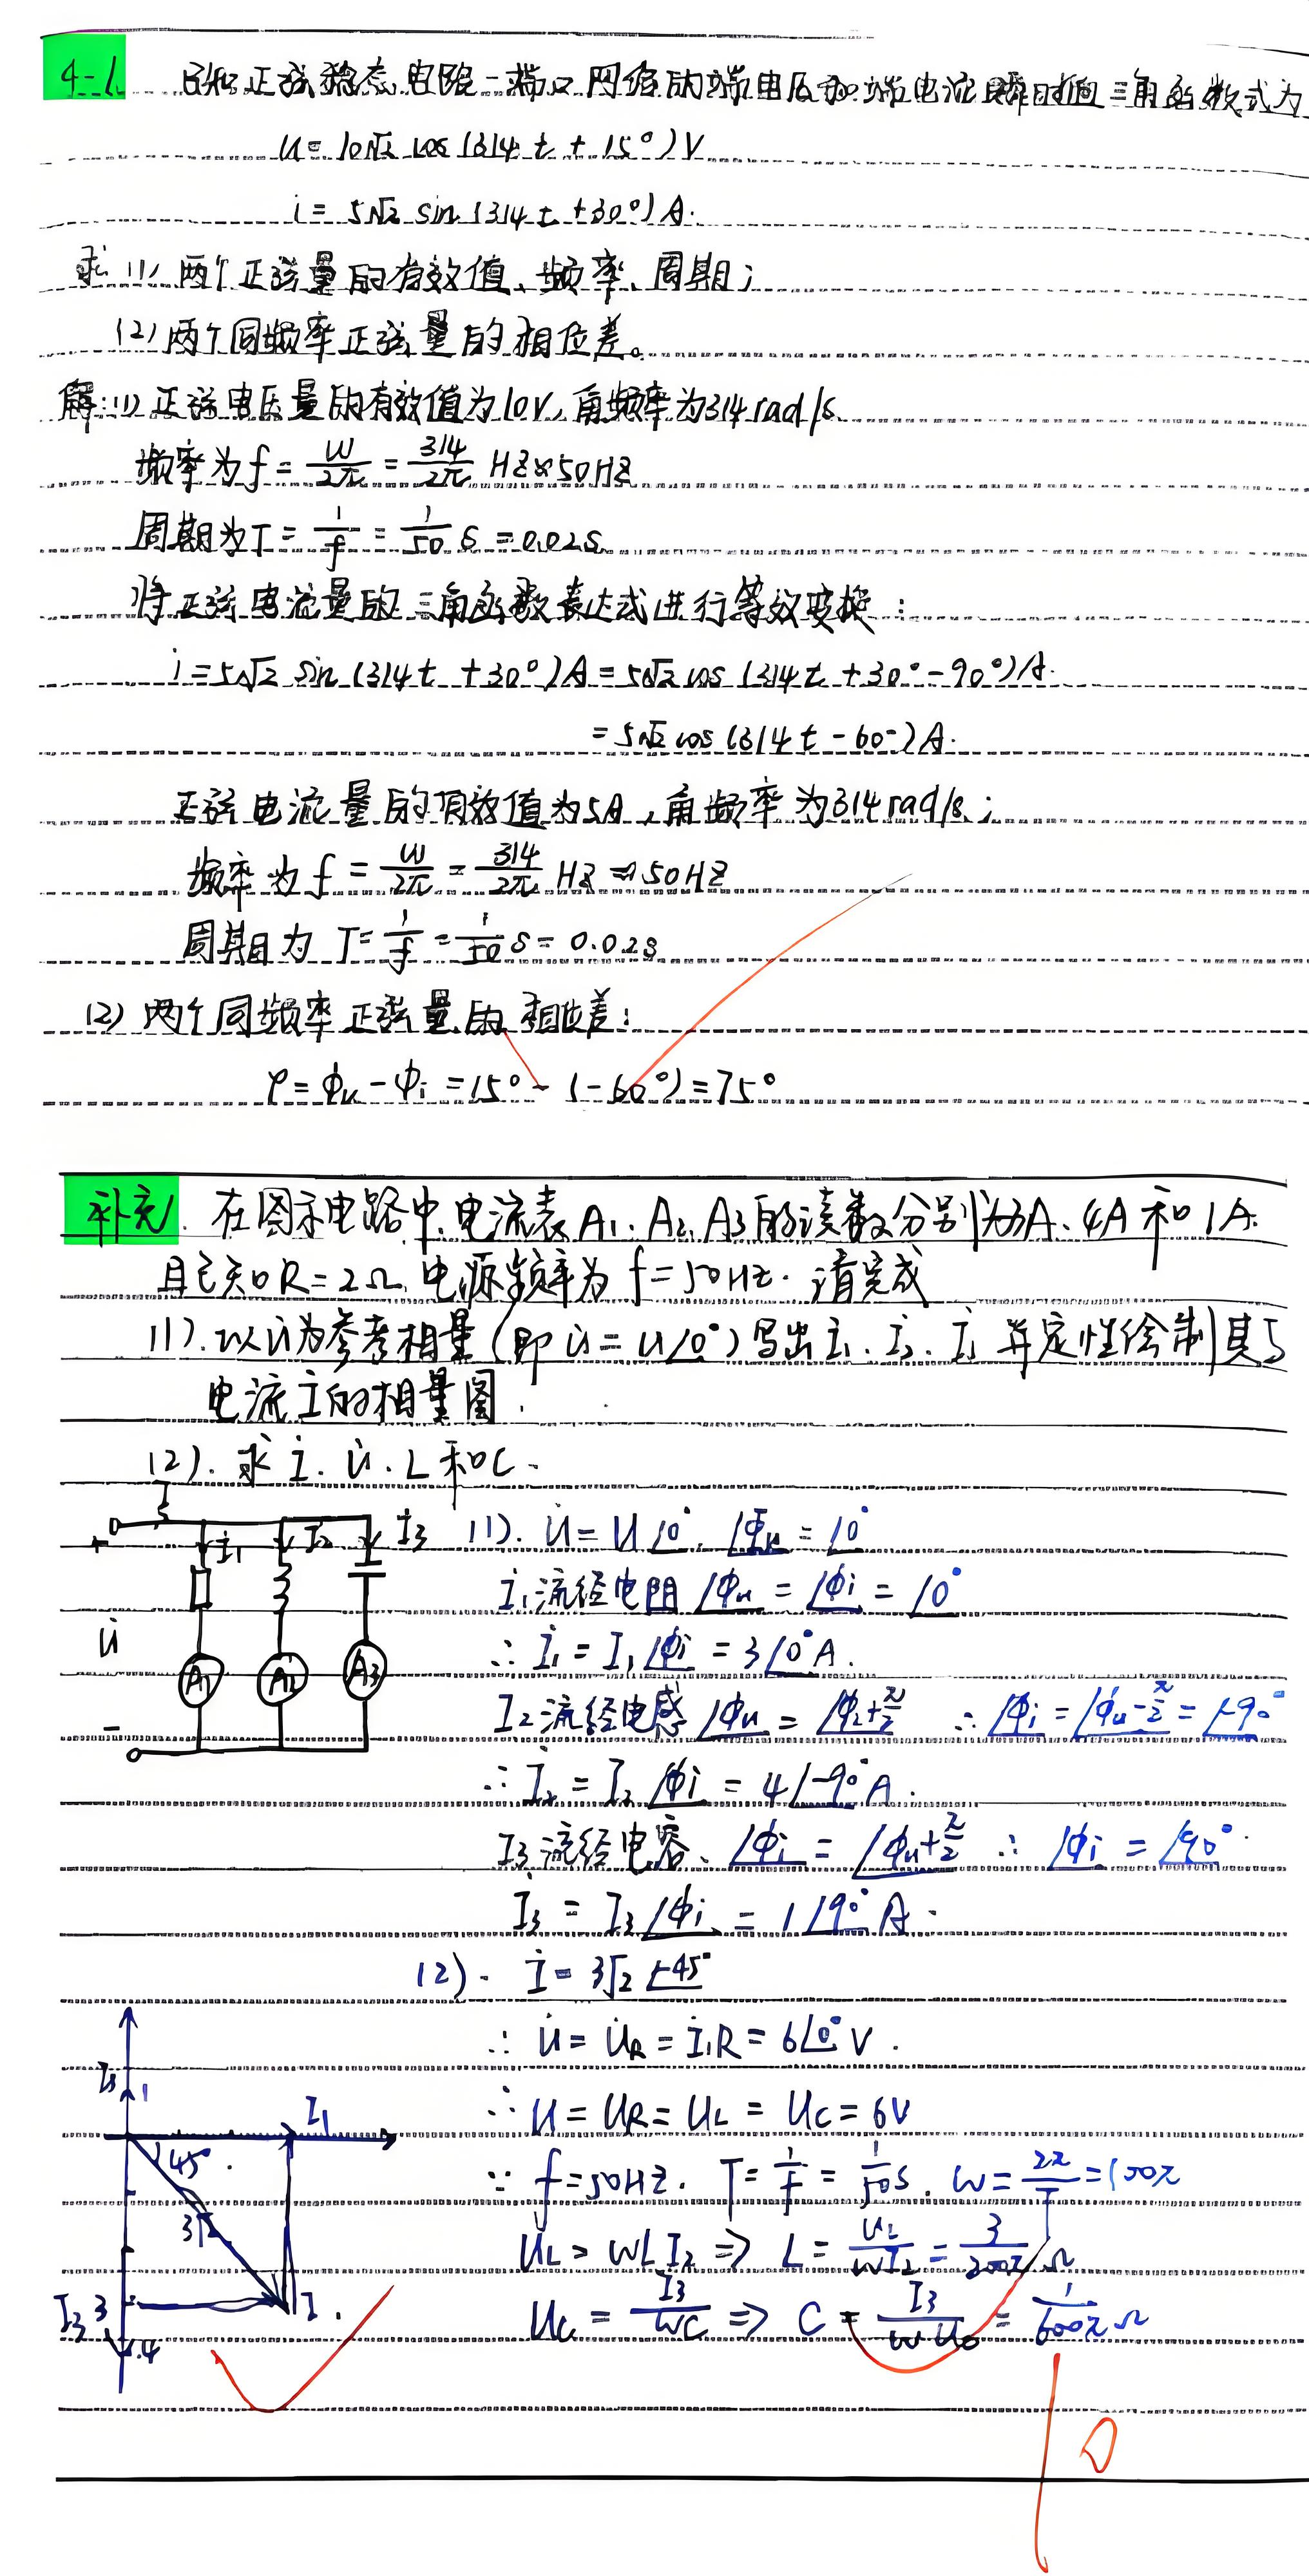 4-1. 已知正弦稳态电路一端口网络的端电压和端电流瞬时值三角函数式为
u = 10√2 cos (314t + 15°) V
i = 5√2 sin (314t + 30°) A.
求 (1) 两个正弦量的有效值、频率、周期;
(2) 两个同频率正弦量的相位差。
解: (1) 正弦电压量的有效值为10V, 角频率为314 rad/s
频率为 f = W/2π = 314/2π HZ ≈ 50HZ
周期为 T = 1/f = 1/50 S = 0.02S
将正弦电流量的三角函数表达式进行等效变换:
i = 5√2 sin (314t + 30°) A = 5√2 cos (314t + 30° - 90°) A.
= 5√2 cos (314t - 60°) A.
正弦电流量的有效值为5A, 角频率为314 rad/s;
频率为 f = W/2π = 314/2π HZ ≈ 50HZ
周期为 T = 1/f = 1/50 S = 0.02S
(2) 两个同频率正弦量的相位差:
φ = ϕu - ϕi = 15° - (-60°) = 75°
补充. 在图示电路中, 电流表 A1. A2. A3 的读数分别为3A. 4A 和 1A.
且已知 R = 2Ω, 电源频率为 f = 50Hz. 请完成
(1). 以 u̇ 为参考相量 (即 u̇ = u∠0°) 写出 İ1. İ2. İ3 并定性绘制其与
电流 İ 的相量图.
(2). 求 İ. u̇. L 和 C.
İ
+
İ1
I2
İ3
u̇
A1
A2
A3
-
(1). u̇ = U∠0°. ∠ϕu = ∠0°
İ1 流经电阻 ∠ϕu = ∠ϕi = ∠0°
∴ İ1 = I1∠ϕi = 3∠0° A.
I2 流经电感 ∠ϕu = ∠ϕi+π/2 ∴ ∠ϕi = ∠ϕu-π/2 = ∠-90°
∴ İ2 = I2∠ϕi = 4∠-90° A.
I3 流经电容、∠ϕi = ∠ϕu+π/2 ∴ ∠ϕi = ∠90°.
İ3 = I3∠ϕi = 1∠90° A.
(2). İ = 3√2∠-45°
∴ u̇ = u̇R = İ1R = 6∠0° V.
∴ U = UR = UL = UC = 6V
∵ f = 50HZ. T = 1/f = 1/50 S. W = 2π/T = 100π
UL = WLI2 ⇒ L = UL/WI2 = 3/200π Ω
UC = I3/WC ⇒ C = I3/WUC = 1/600π Ω
1
I1
45°
3√2
3
I.
4
10